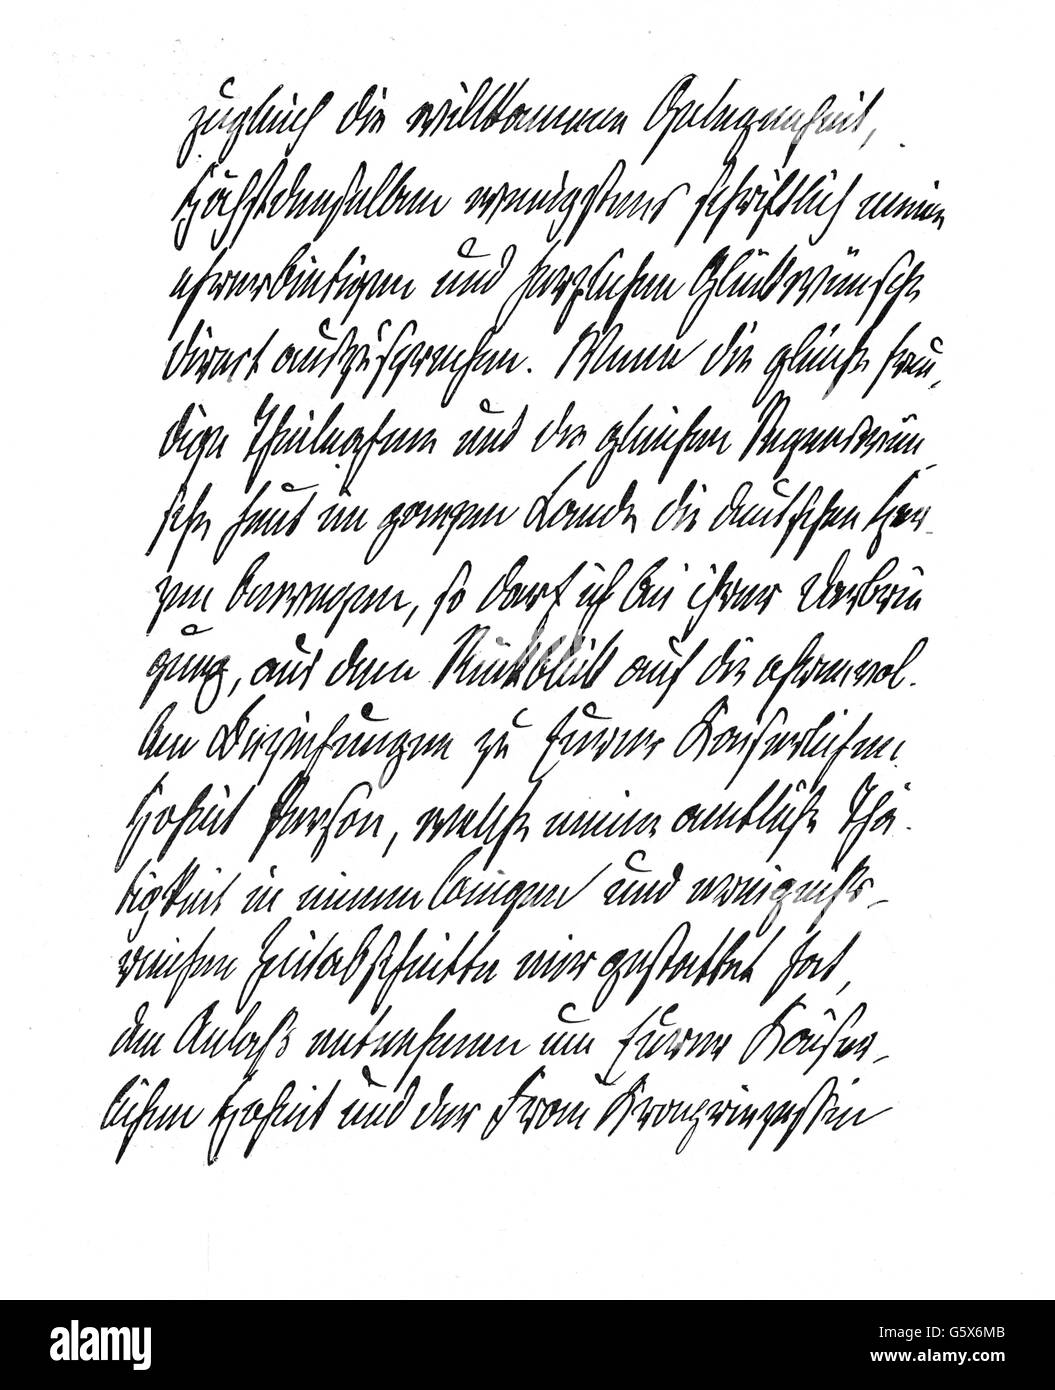 zugleich die willkommene Gelegenheit,
Höchstdenselben wenigstens schriftlich meine
ehrerbietigen und herzlichen Glückwünsche
direct auszusprechen. Wenn die gleiche freu-
dige Theilnahme und die gleichen Segenswün-
sche heut im ganzen Lande die deutschen Her-
zen bewegen, so darf ich bei ihrer Verbrie
gung, aus dem Rückblick auf die ehrenvol-
len Beziehungen zu Eurer Kaiserlichen
Hoheit Person, welche meine amtliche Thä-
tigkeit in einem langen und ereigniß-
reichen Zeitabschnitte mir gestattet hat,
den Anlaß entnehmen um Eurer Kaiser-
lichen Hoheit und der Frau Kronprinzessin
alamy
alamy
Image ID: G5X6MB
www.alamy.com